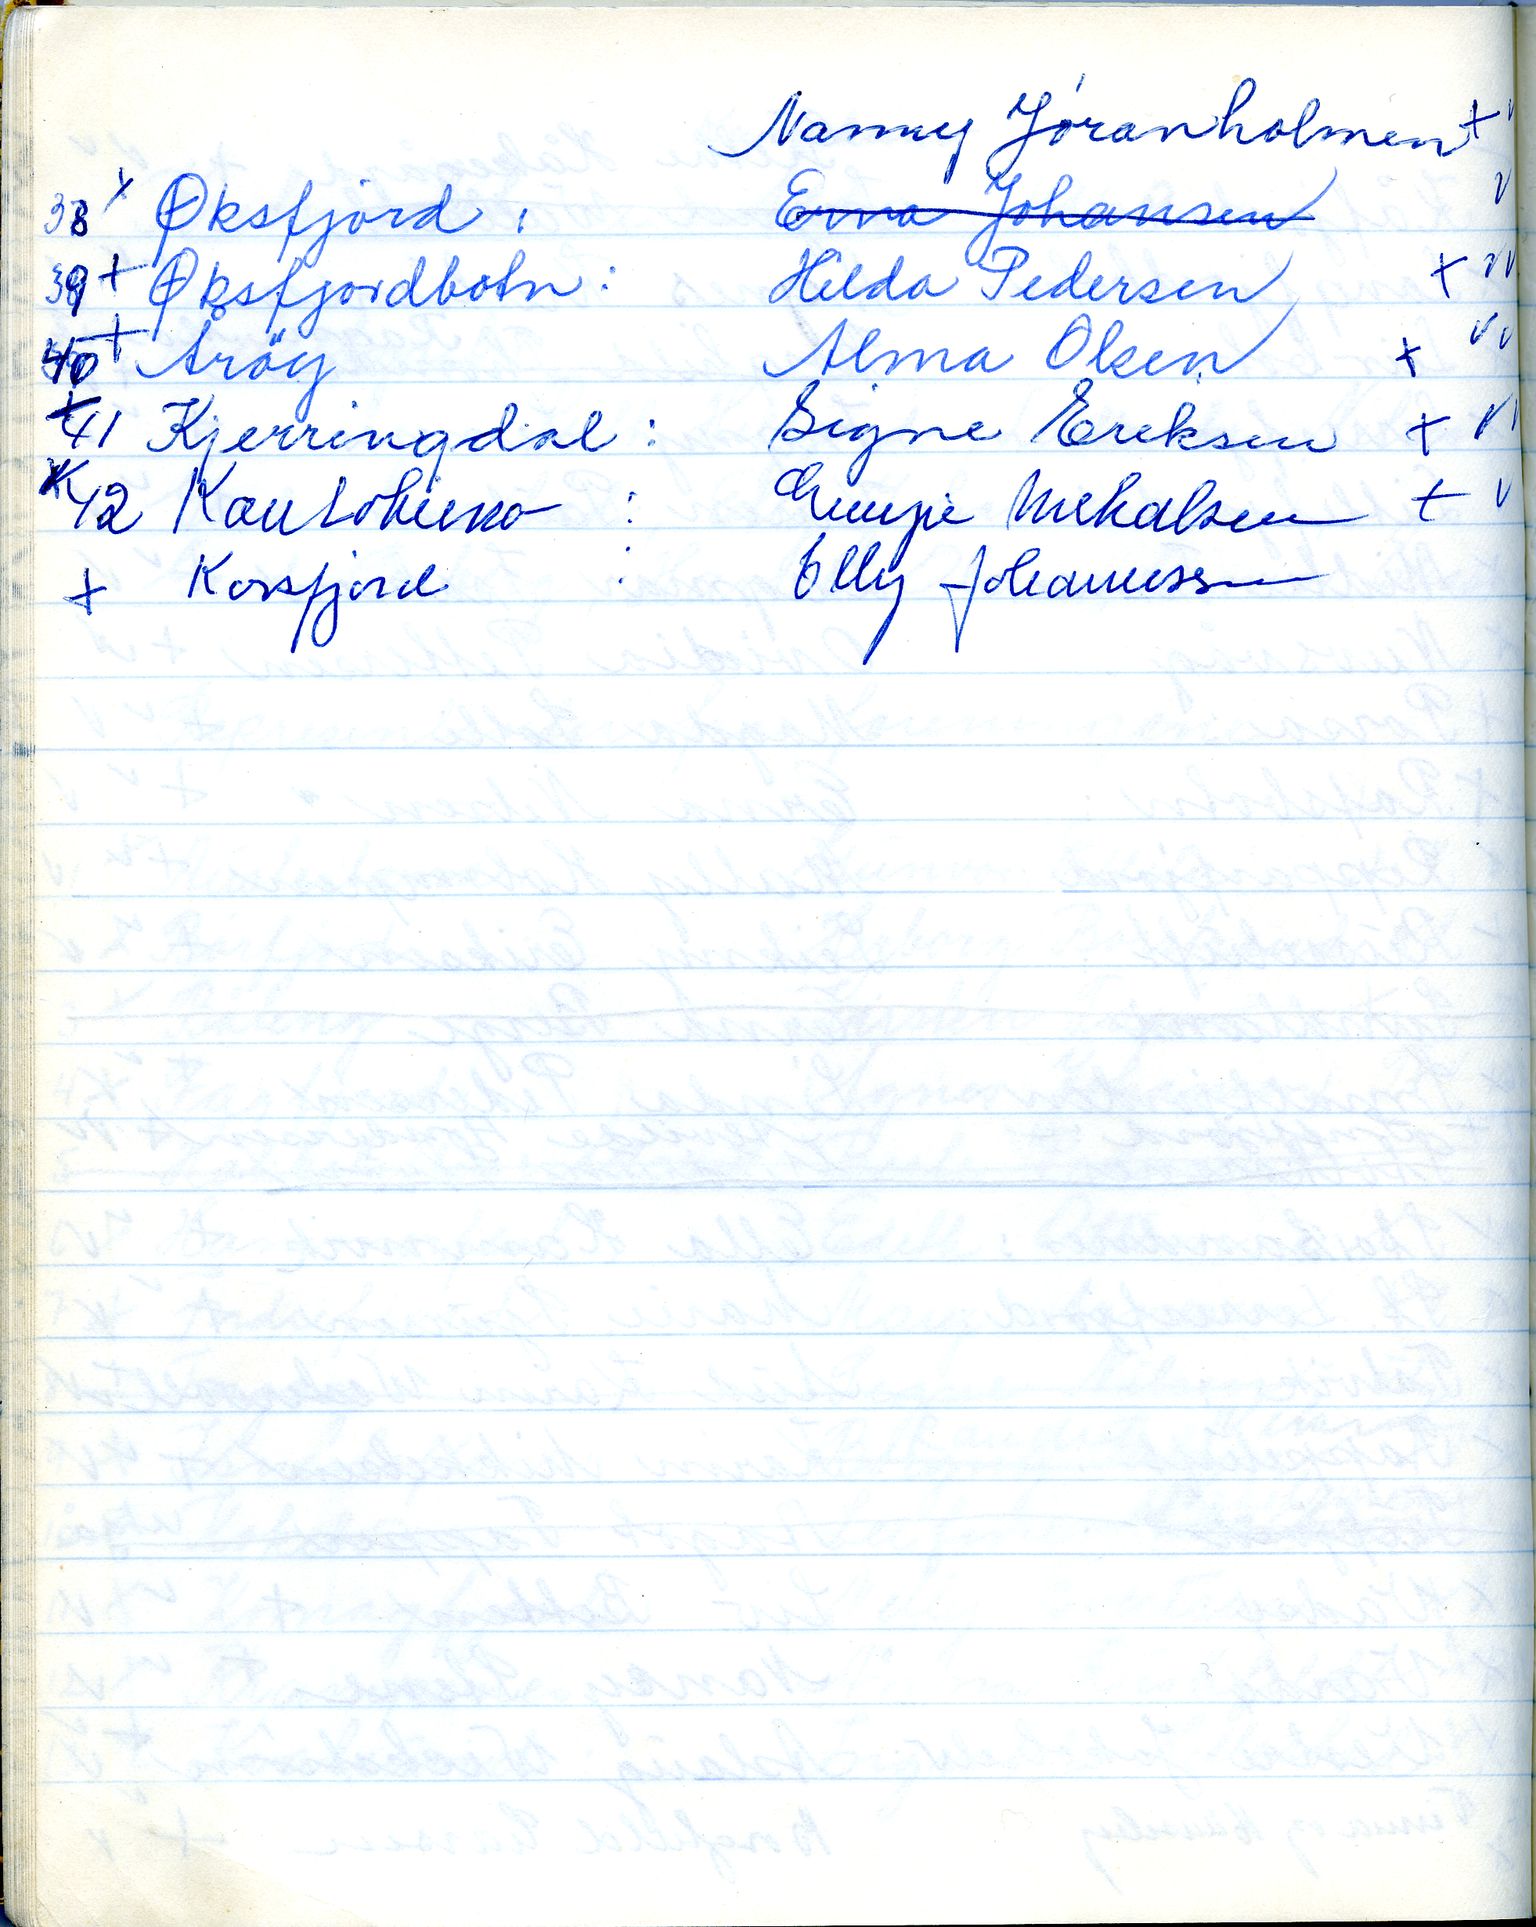 Nanny Jøranholmen + v
38 x Øksfjord : ~~Erna Johansen~~ v
39 + Øksfjordbotn : Hilda Pedersen + v v
40 + Årøy Alma Olsen + v v
+ 41 Kjerringdal : Signe Eriksen + v v
x 42 Kautokeino : Mikalsen + v
+ Korsfjord : Elly Johannessen